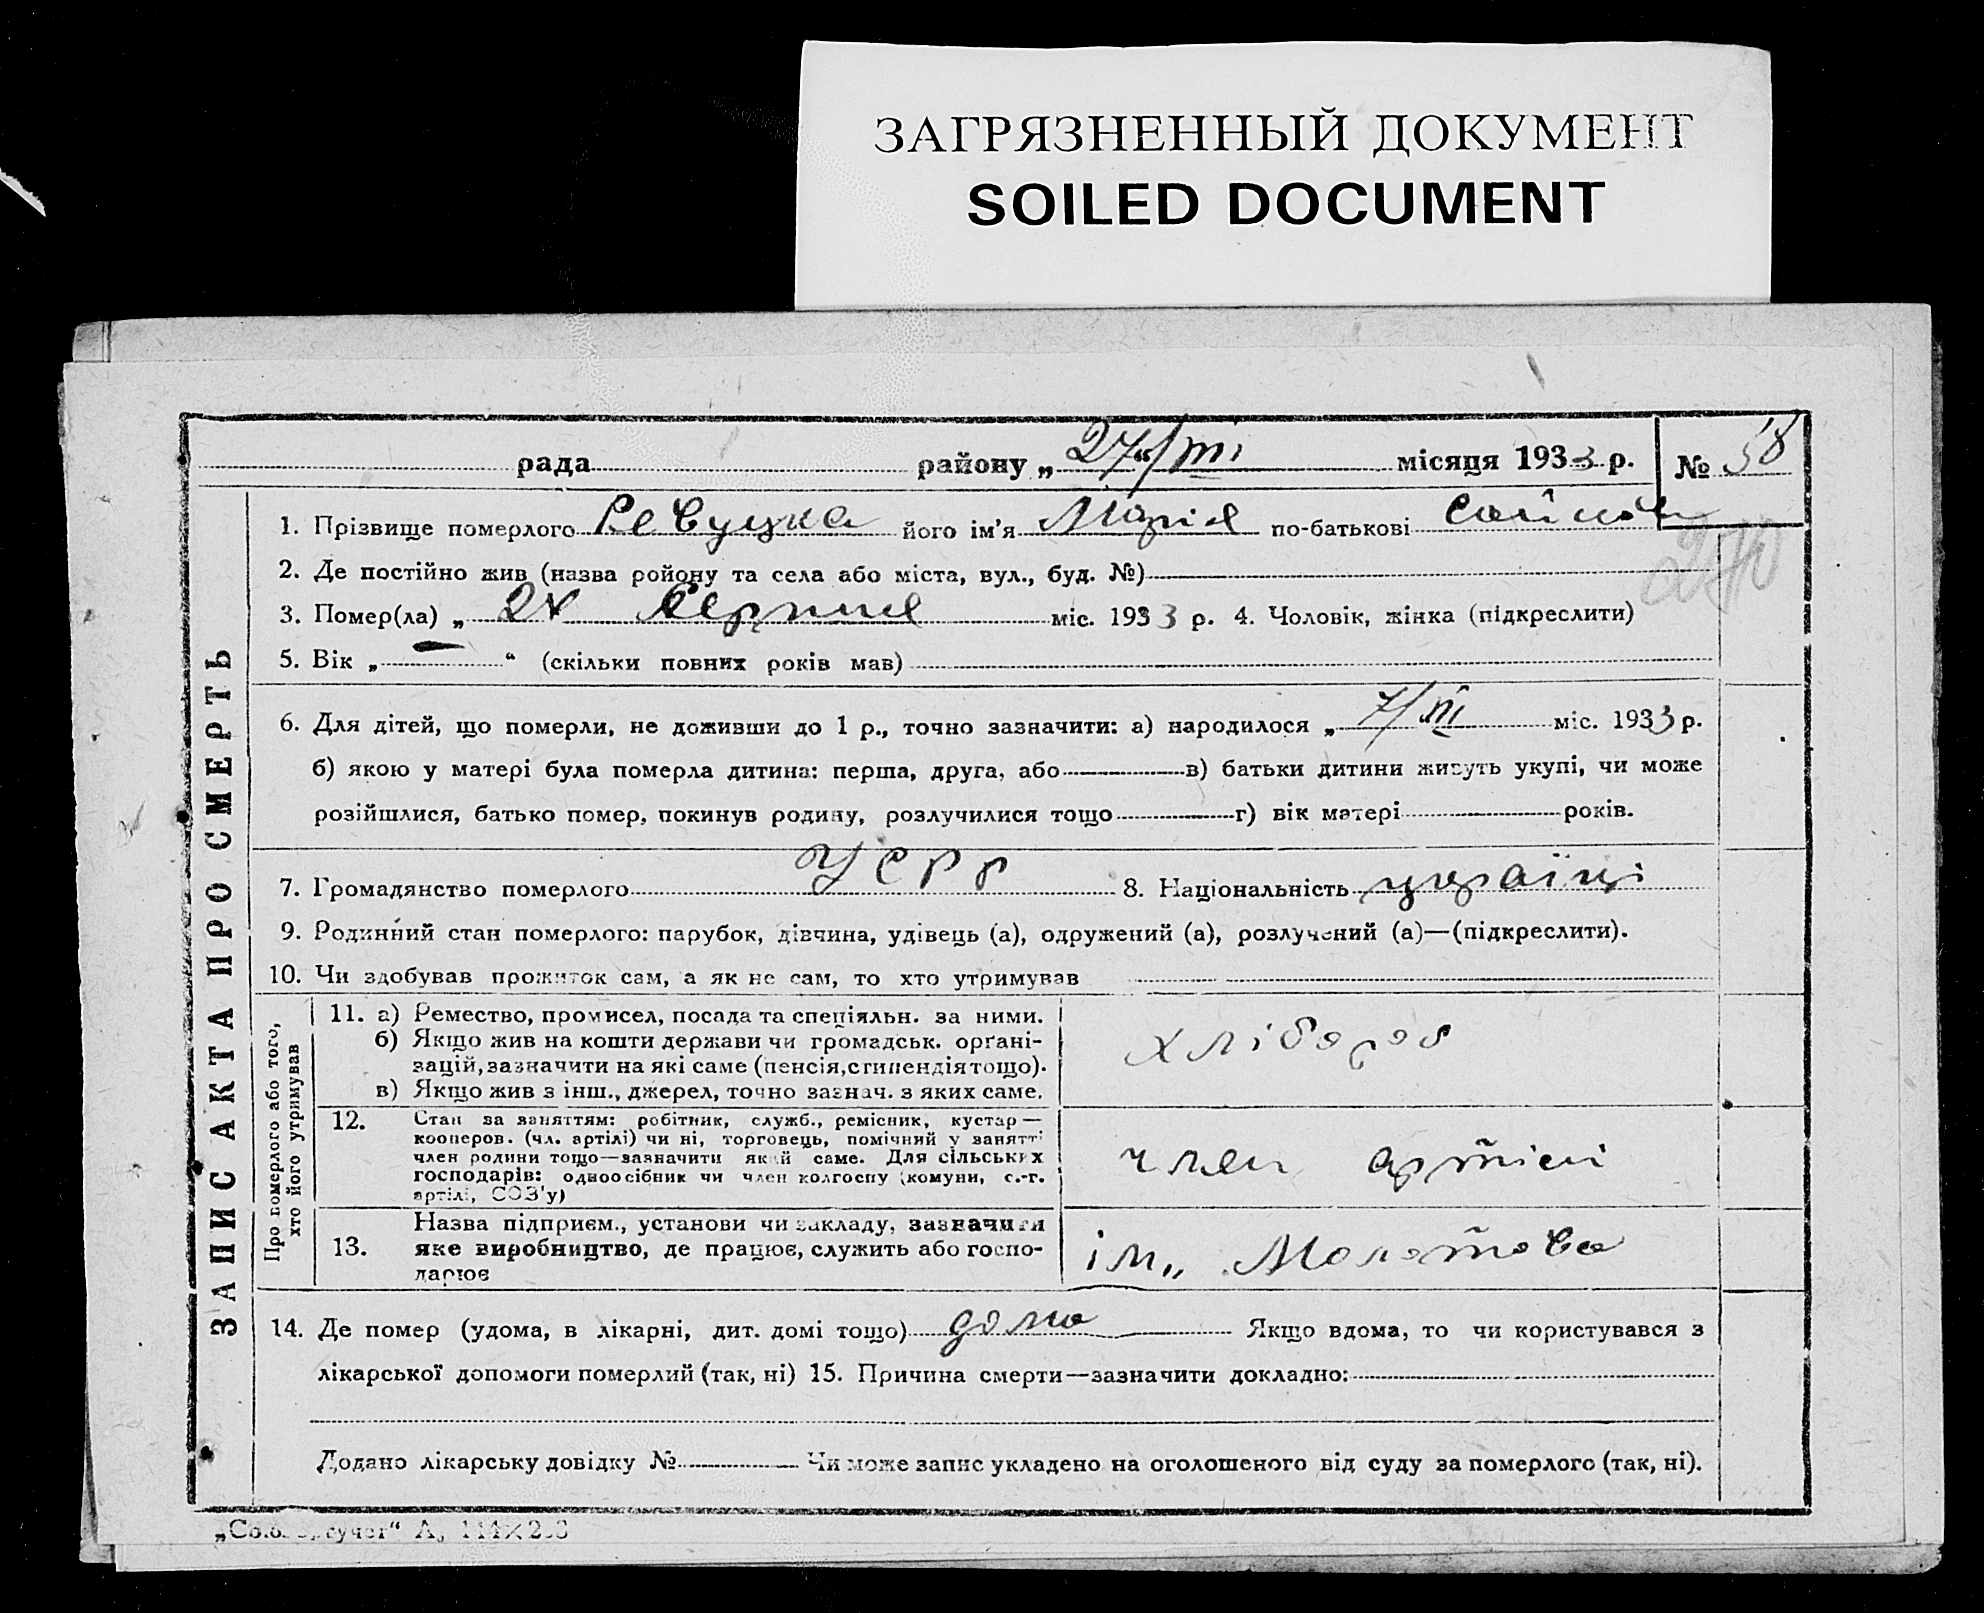 ЗАГРЯЗНЕННЫЙ ДОКУМЕНТ
SOILED DOCUMENT
рада району „27“/ місяця 1933 р. № 58
1. Прізвище померлого Ревуцка його ім'я Марія по-батькові
270
2. Де постійно жив (назва ройону та села або міста, вул., буд. №)
3. Помер(ла) „ Серпня міс. 1933 р. 4. Чоловік, жінка (підкреслити)
5. Вік „ — “ (скільки повних років мав)
6. Для дітей, що померли, не доживши до 1 р., точно зазначити: а) народилося „ 7/ міс. 1933 р.
б) якою у матері була померла дитина: перша, друга, або в) батьки дитини живуть укупі, чи може
розійшлися, батько помер, покинув родину, розлучилися тощо г) вік матері років.
7. Громадянство померлого УСРР 8. Національність україці
9. Родинний стан померлого: парубок, дівчина, удівець (а), одружений (а), розлучений (а)—(підкреслити).
10. Чи здобував прожиток сам, а як не сам, то хто утримував
ЗАПИС АКТА ПРО СМЕРТЬ
Про померлого або того,
хто його утримував
11. а) Ремество, промисел, посада та спеціяльн. за ними.
б) Якщо жив на кошти держави чи громадськ. орґані-
зацій, зазначити на які саме (пенсія, стипендія тощо).
в) Якщо жив з інш., джерел, точно зазнач. з яких саме.
хлібороб
12. Стан за заняттям: робітник, служб., ремісник, кустар—
кооперов. (чл. артілі) чи ні, торговець, помічний у занятті
член родини тощо—зазначити який саме. Для сільських
господарів: одноосібник чи член колгоспу (комуни, с.-г.
артілі, СОЗ'у)
член артілі
13. Назва підприєм., установи чи закладу, зазначити
яке виробництво, де працює, служить або госпо-
дарює
ім„ Молотова
14. Де помер (удома, в лікарні, дит. домі тощо) дома Якщо вдома, то чи користувався з
лікарської допомоги померлий (так, ні) 15. Причина смерти—зазначити докладно:
Додано лікарську довідку № Чи може запис укладено на оголошеного від суду за померлого (так, ні).